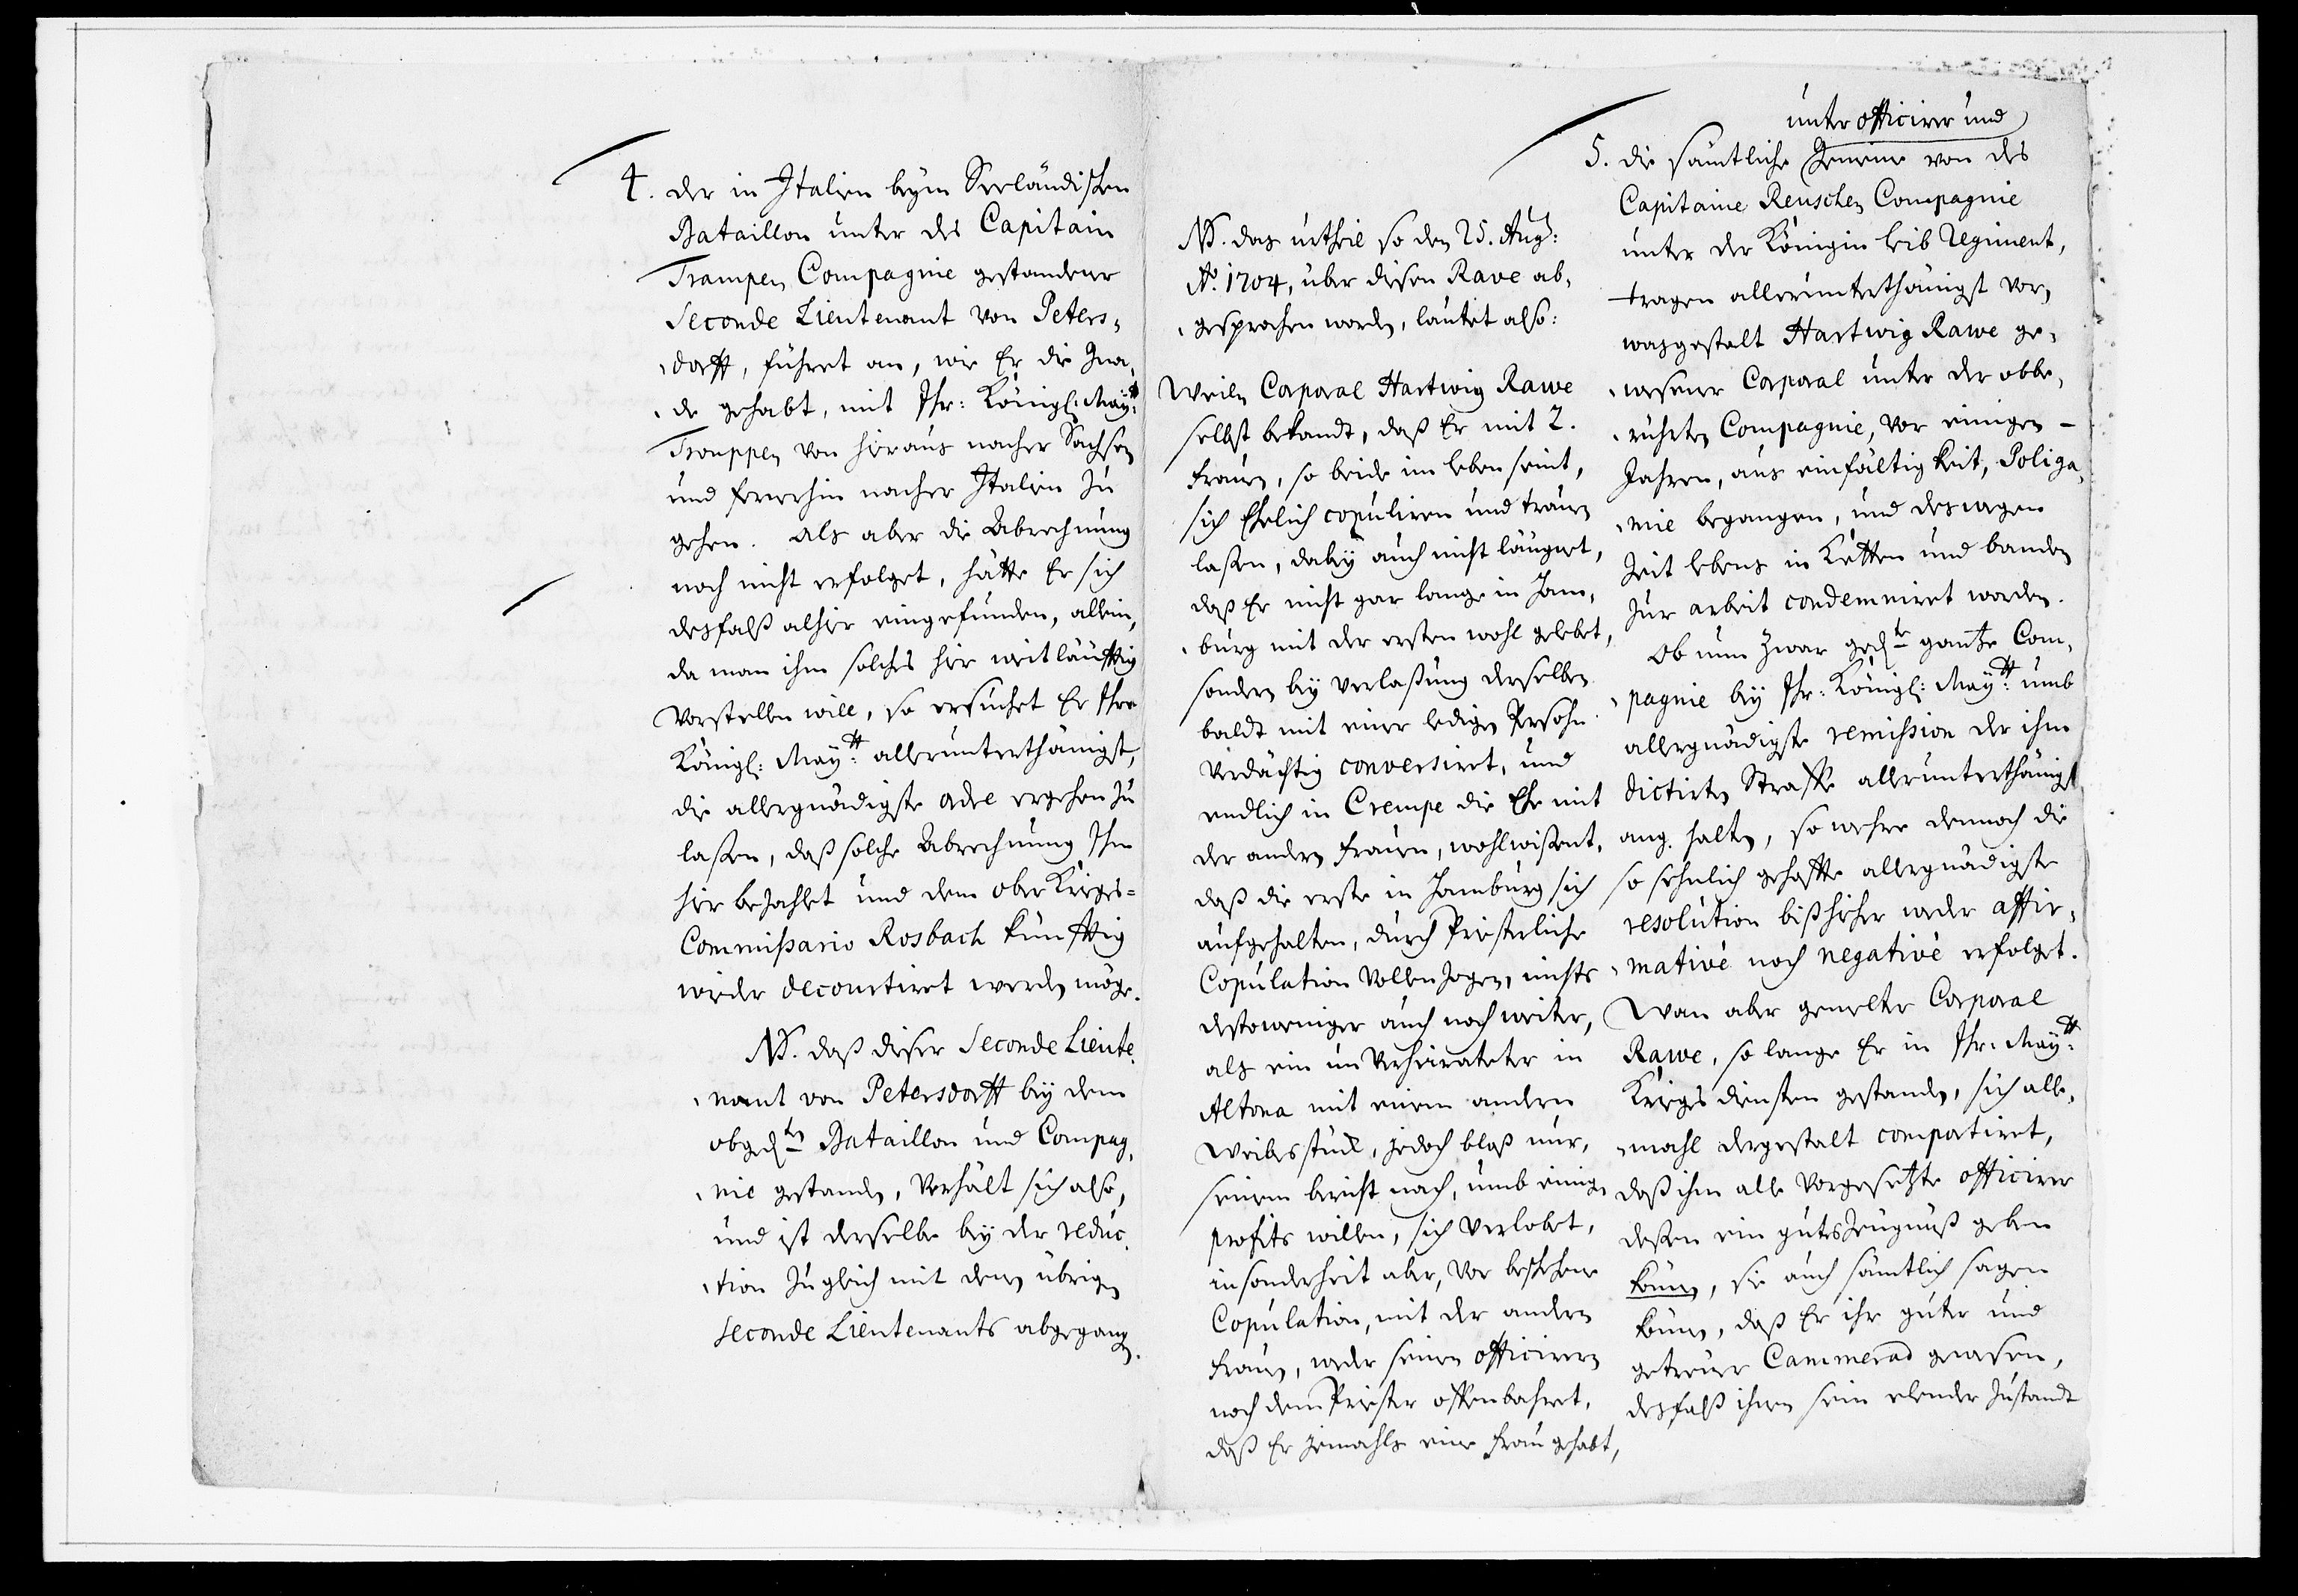 4. der in Italien beym Seeländischen
Bataillon unter des Capitain
Trampen Compagnie gestandener
Seconde Lieutenant von Peters-
dorff, führet an, wie Er die Gna-
de gehabt, mit Ihr: Königl: Maytt:
Trouppen von hieraus nacher Sachsen
und fernerhin nacher Italien zu
gehen. Als aber die Abrechnung
noch nicht erfolget, hätte Er sich
desfalß alhier eingefunden, allein,
da man ihm solches hier weitläufftig
vorstellen will, so ersuchet Er Ihre
Königl: Maytt: allerunterthänigst,
die allergnädigste ordre ergehen zu
laßen, daß solche Abrechnung Ihm
hier bezahlet und dem Ober Kriegs-
Commißario Rosbach künfftig
wieder decourtiret werden möge.
NB. daß dieser Seconde Lieute-
nant von Petersdorff bey dem
obgedten Bataillon und Compag-
nie gestanden, verhält sich also,
und ist derselbe bey der reduc-
tion zugleich mit denen übrigen
Seconde Lieutenants abgegangen.
NB. das urtheil so den 25. Aug:
Ao. 1704, über diesen Rave ab-
gesprochen worden, lautet also:
Weilen Corporal Hartwig Rawe
selbst bekandt, daß Er mit 2.
Frauen, so beide im leben seint,
sich Ehelich copuliren und trauen
laßen, dabey auch nicht läugnet,
daß Er nicht gar lange in Ham-
burg mit der ersten wohl gelebet,
sondern bey verlaßung derselben
baldt mit einer ledigen Persohn
verdächtig conversiret, und
endlich in Crempe die Ehe mit
der andern Frauen, wohlwißent,
daß die erste in Hamburg sich
aufgehalten, durch Priesterliche
Copulation vollenzogen, nichts
destoweniger auch noch weiter,
als ein unverheirateter in
Altona mit einem andern
Weibesstück, jedoch bloß nur,
seinem bericht nach, umb einigen
profits willen, sich verlobet,
insonderheit aber, vor beschehener
Copulation, mit der andern
Frauen, weder seinen officirern
noch dem Priester offenbahret,
daß Er jemahls eine Frau gehabt,
unter officirer und
5. die sämtliche Gemeine von des
Capitaine Reuschen Compagnie
unter der Königin leib Regiment,
tragen allerunterthänigst vor,
wasgestalt Hartwig Rawe ge-
wesener Corporal unter der obbe-
rührten Compagnie, vor einigen -
Jahren, aus einfältigkeit, Poliga-
mie begangen, und deswegen
Zeit lebens in Ketten und banden
zur arbeit condemniret worden.
Ob nun zwar gedte gantze Com-
pagnie bey Ihr: Königl: Maytt: umb
allergnädigste remission der ihm
dictirten Straffe allerunterthänigst
ang. halten, so wehre dennoch die
so sehnlich gehoffte allergnädigste
resolution bißhieher weder affir-
mativè noch negativè erfolget.
Wan aber gemelter Corporal
Rawe, so lange Er in Ihr. Maytt:
Kriegs diensten gestanden, sich alle-
mahl dergestalt comportiret,
daß ihm alle vorgesetzte officirer
deßen ein gutes Zeugnuß geben
können, sie auch sämtlich sagen
können, daß Er ihr guter und
getreuer Cammerad gewesen,
desfalß ihnen sein elender Zustandt